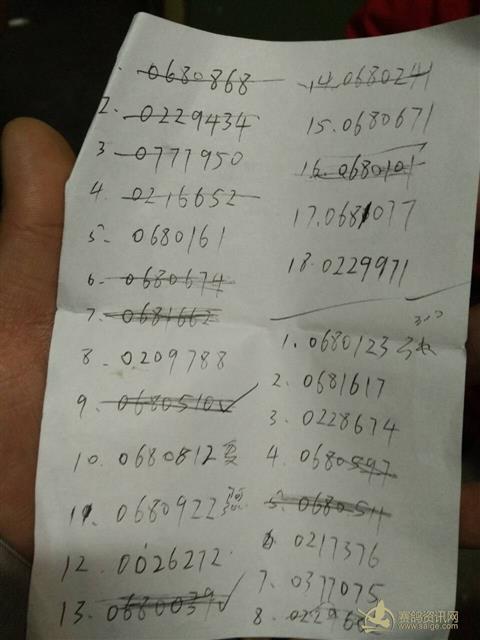 1. 0680868
2. 0229434
3. 0777950
4. 0216652
5. 0680161
6. 0680674
7. 0681662
8. 0209788
9. 0680510 ✓
10. 0680812
11. 0680922
12. 0026272
13. 0680039 ✓
14. 0680241
15. 0680671
16. 0680101
17. 0681077
18. 0229971
1. 0680123
2. 0681617
3. 0228674
4. 0680597
5. 0680511
6 0217376
7. 0377075
8.
赛鸽资讯网
www.saige.com